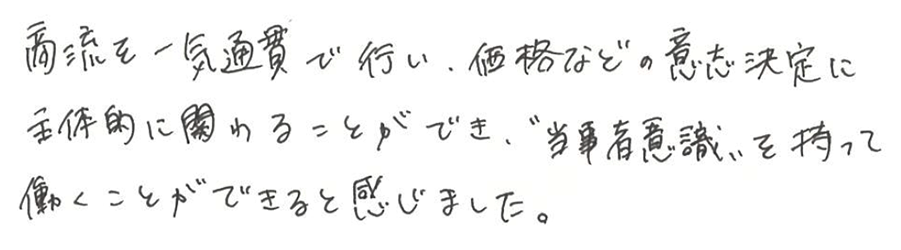 商流を一気通貫で行い、価格などの意志決定に
主体的に関わることができ、“当事者意識”を持って
働くことができると感じました。